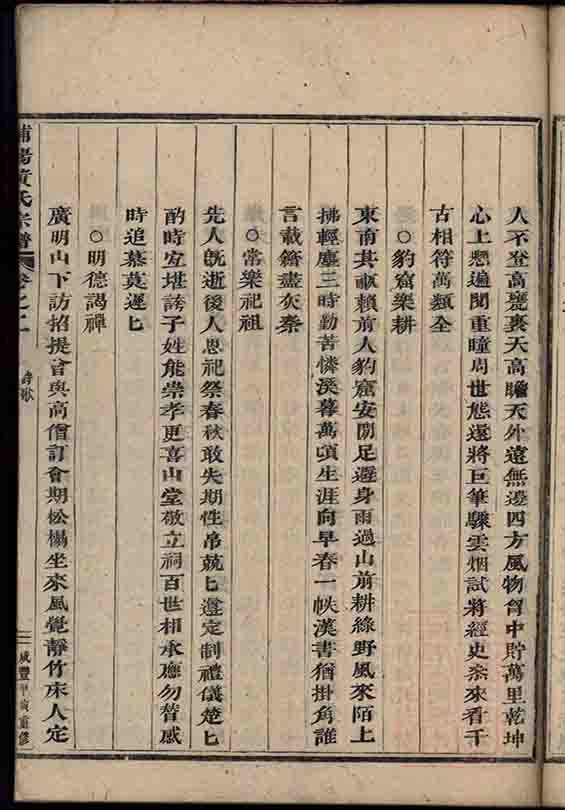 人不登高甕裏天高瞻天外遠無邊四方風物胷中貯萬里乾坤
心上懸遍閱重瞳周世態還將巨筆驟雲烟試將經史叅來看千
古相符萬類全
○豹窟樂耕
東南其畝賴前人豹窟安閒足避身雨過山前耕綠野風來陌上
拂輕塵三時勤苦憐溪暮萬頃生涯向早春一帙漢書猶掛角誰
言載籍盡灰秦
○常樂祀祖
先人旣逝後人思祀祭春秋敢失期性帛兢匕遵定制禮儀楚匕
酌時宜堪誇子姓能崇孝更喜山堂敬立祠百世相承應勿替感
時追慕莫遲匕
○明德謁禪
廣明山下訪招提會與高僧訂會期松榻坐來風覺靜竹床人定
浦陽黃氏宗譜 卷之二 詩歌 咸豐甲寅重修